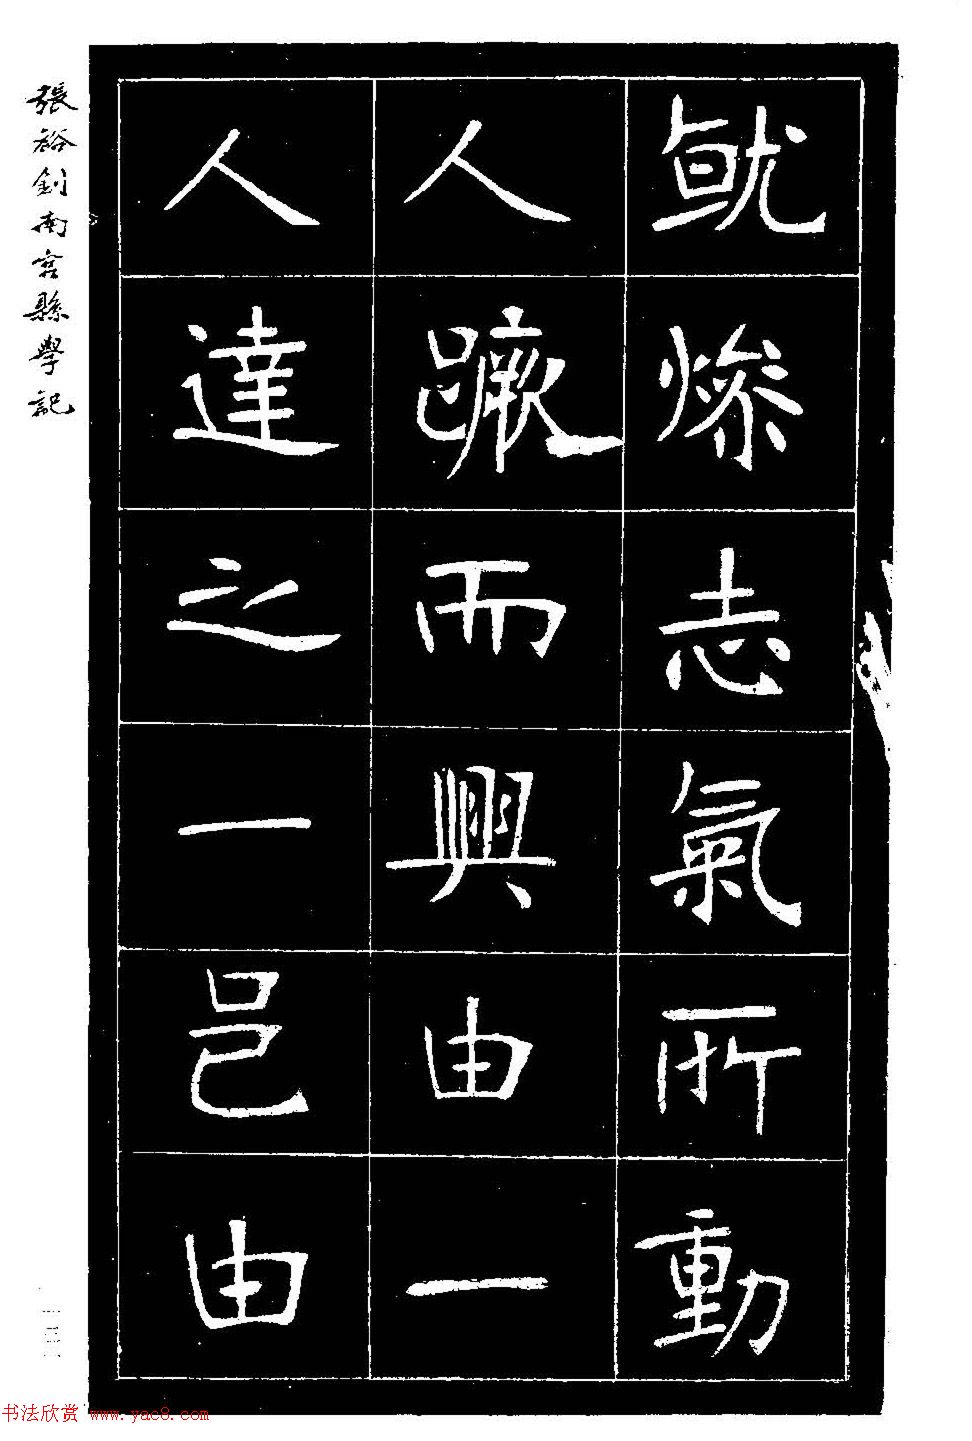 就燦志氣所動
人蹶而興由一
人達之一邑由
張裕釗南宮縣學記
一三一
书法欣赏 www.yac8.com